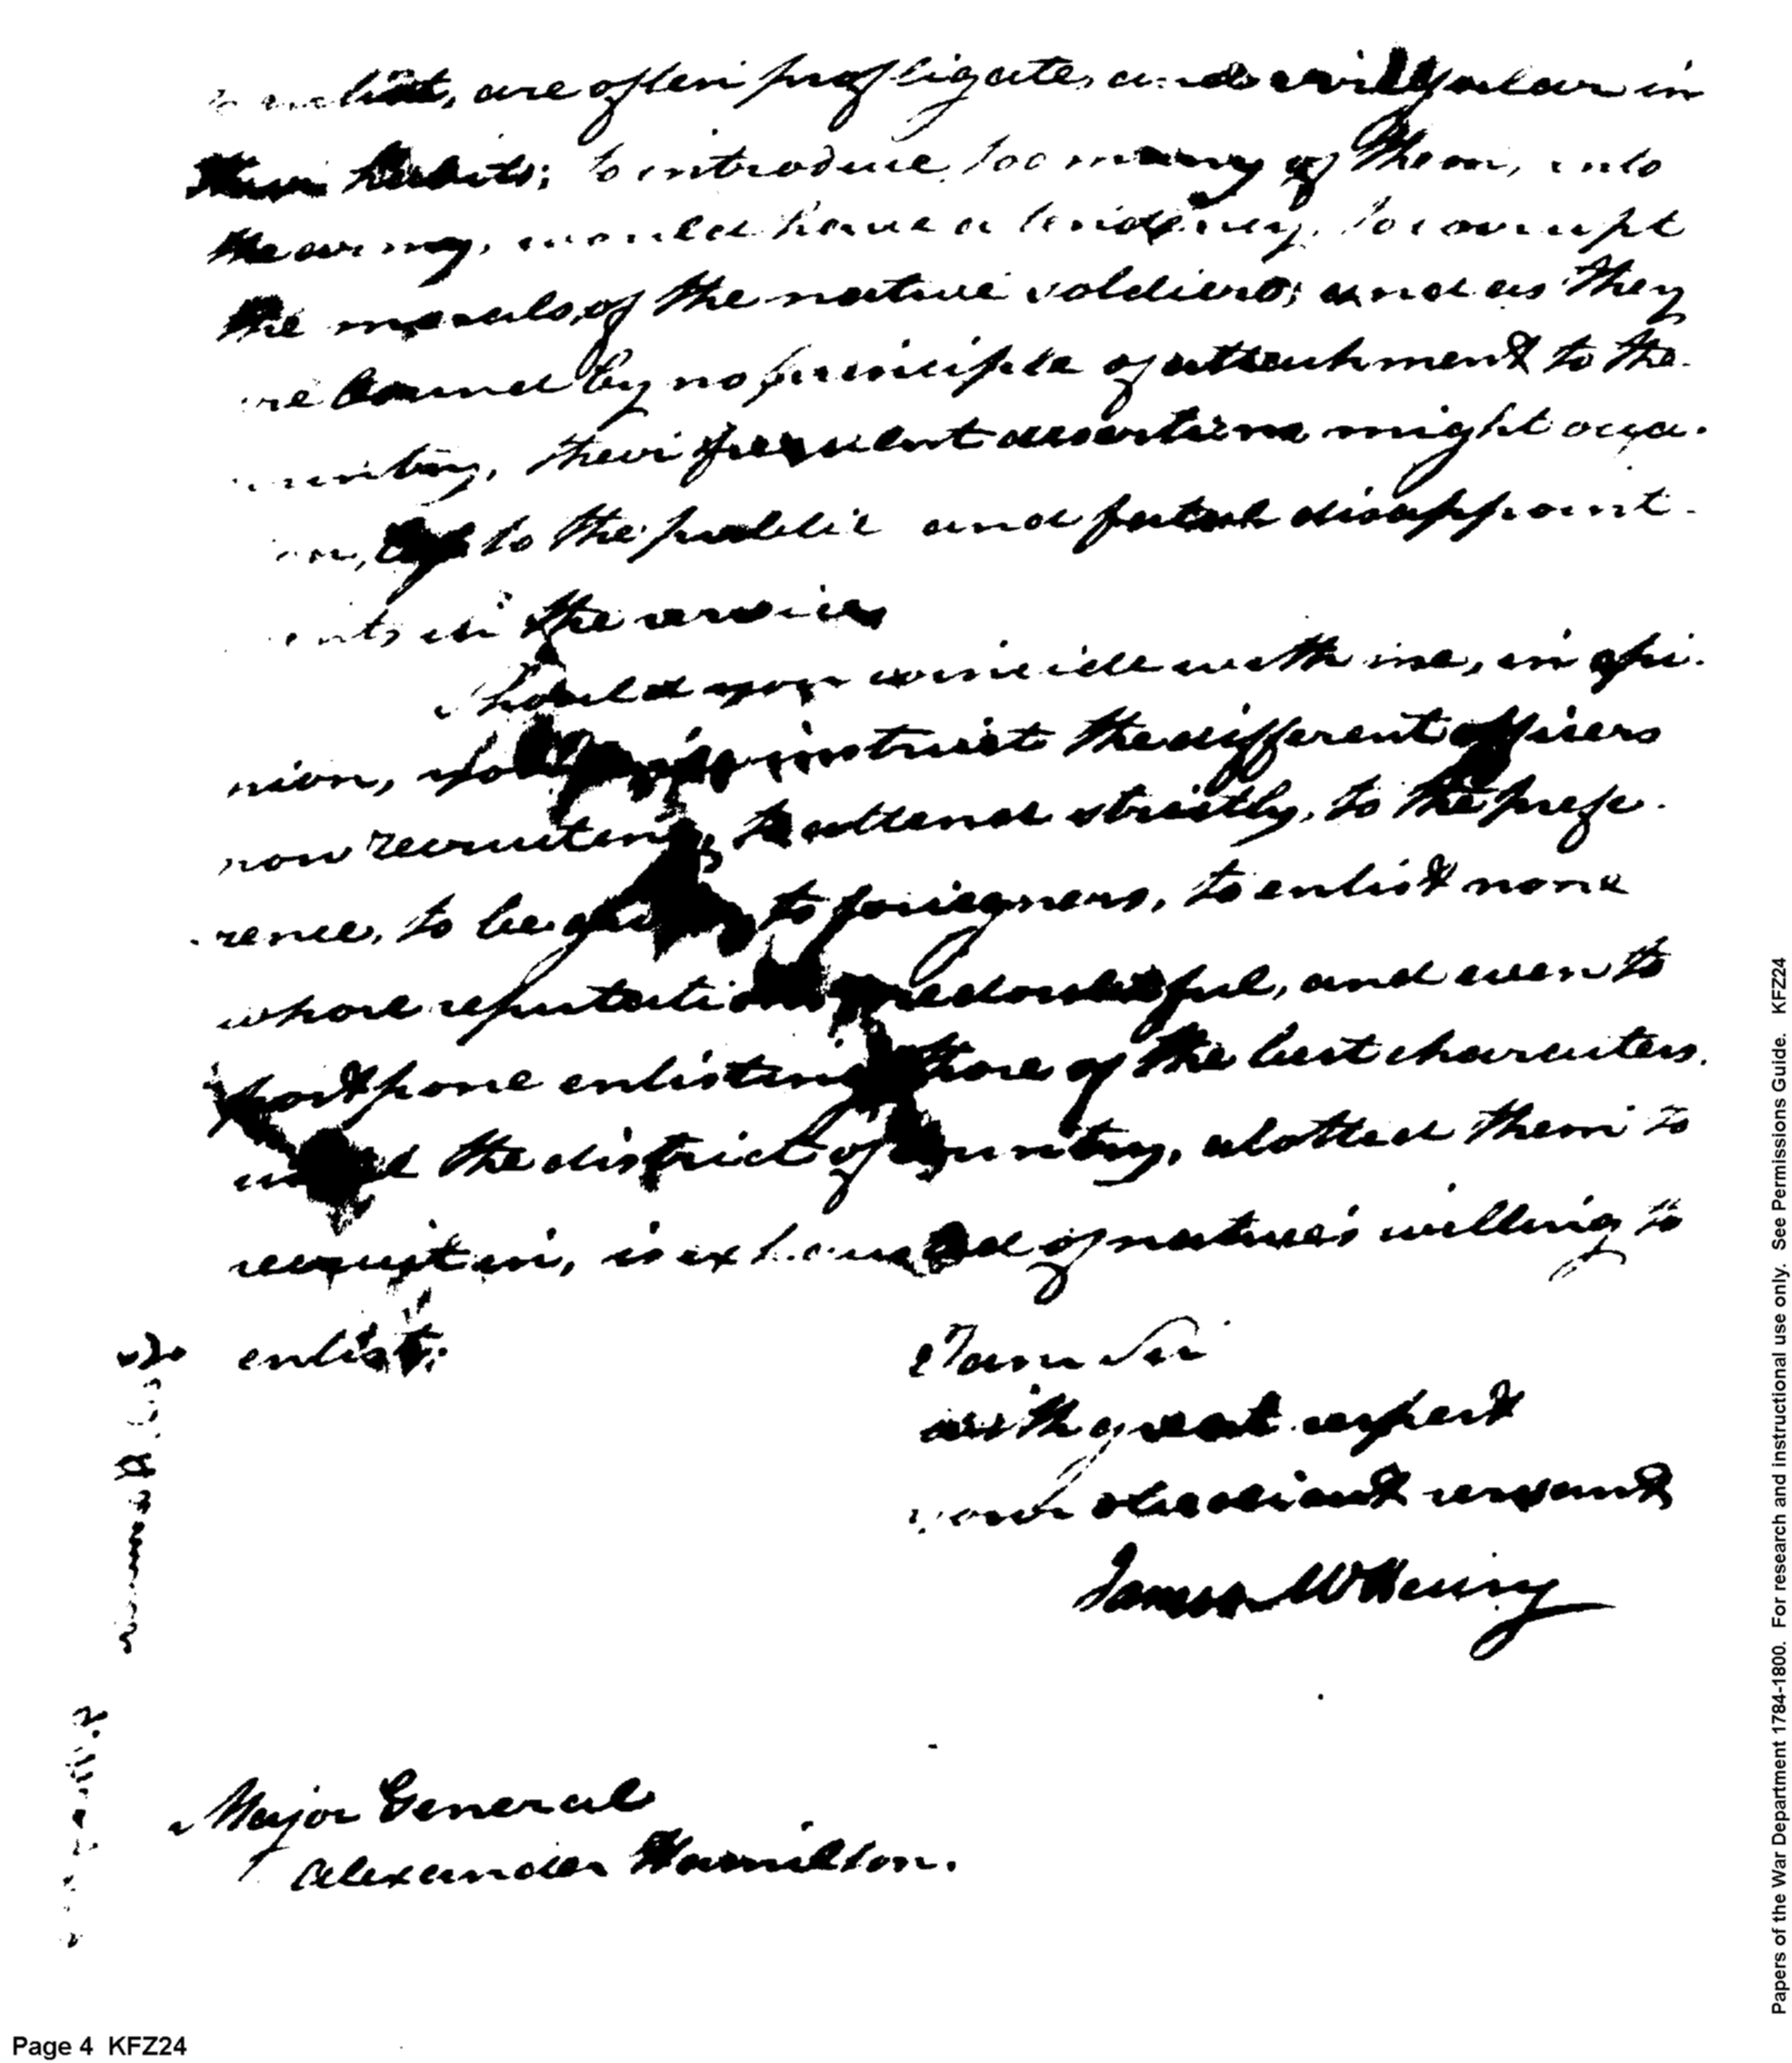 to enlist, are often profligate, and irregular in
their habits; to introduce too many of them, into
the army, would have a tendency, to corrupt
the morals, of the native soldiers; and as they
are bound by no principle of attachment to the
country, their frequent desertions might occa-
to the public and disappoint-
ments in the service
Should you coincide with me, in opi-
nion, you instruct the different officers
now recruiting, to attend strictly, to the prefe-
rence, to be to foreigners, to enlist none
whose reputations are doubtful, and even to
postpone enlisting those of the best characters,
until the district of country, alotted them to
recruit in, is exhausted of natives willing to
enlist;
I am Sir
with great respect
your obedient servant
James McHenry
Major General
Alexander Hamilton.
Page 4 KFZ24
Papers of the War Department 1784-1800. For research and instructional use only. See Permissions Guide. KFZ24